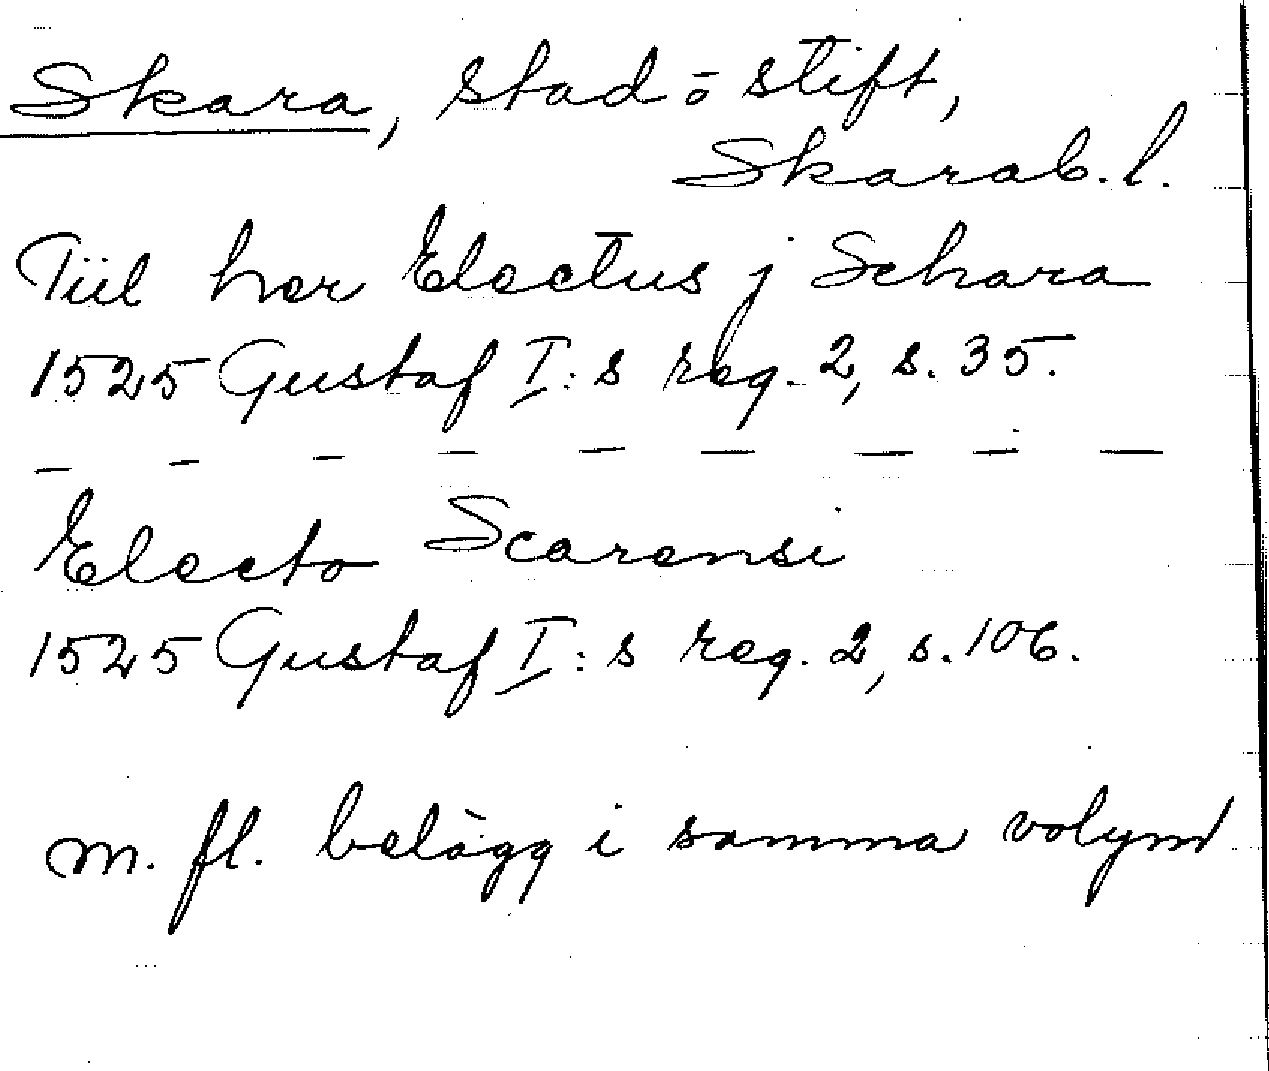 Skara, stad o stift,
Skarab. l.
Tiil her Electus j Schara
1525 Gustaf I:s reg. 2, s. 35.
— — — — — — — — —
Electo Scarensi
1525 Gustaf I:s reg. 2, s. 106.
m. fl. belägg i samma volym